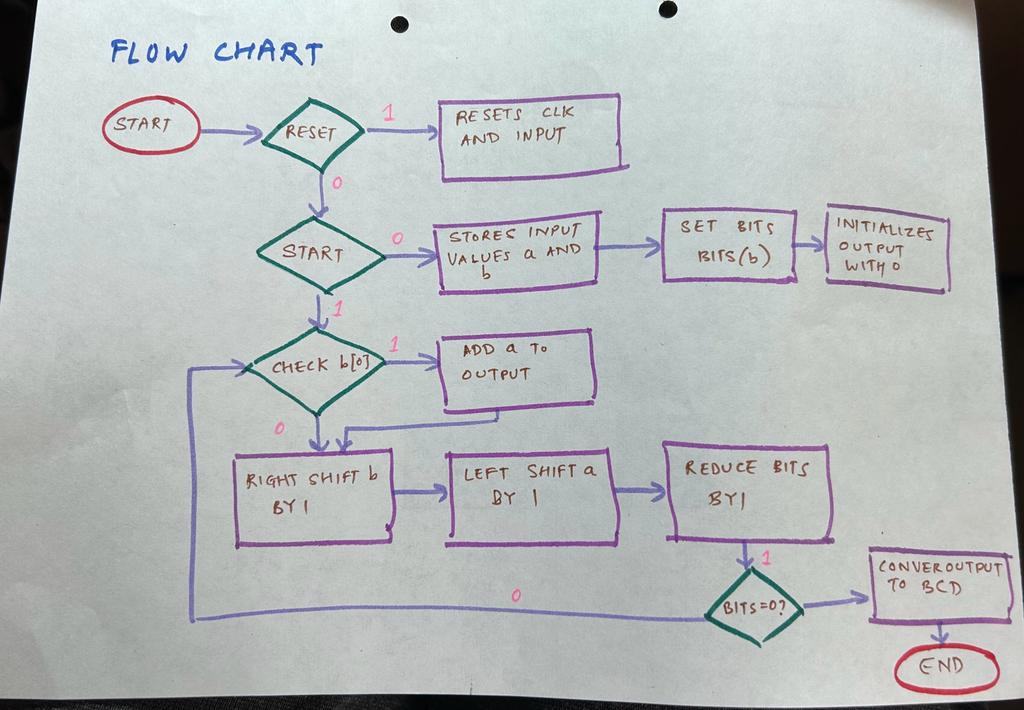 FLOW CHART
START
RESET
1
RESETS CLK
AND INPUT
0
START
0
STORES INPUT
VALUES a AND
b
SET BITS
BITS(b)
INITIALIZES
OUTPUT
WITH 0
1
CHECK b[0]
1
ADD a TO
OUTPUT
0
RIGHT SHIFT b
BY 1
LEFT SHIFT a
BY 1
REDUCE BITS
BY 1
1
BITS=0?
0
CONVEROUTPUT
TO BCD
END